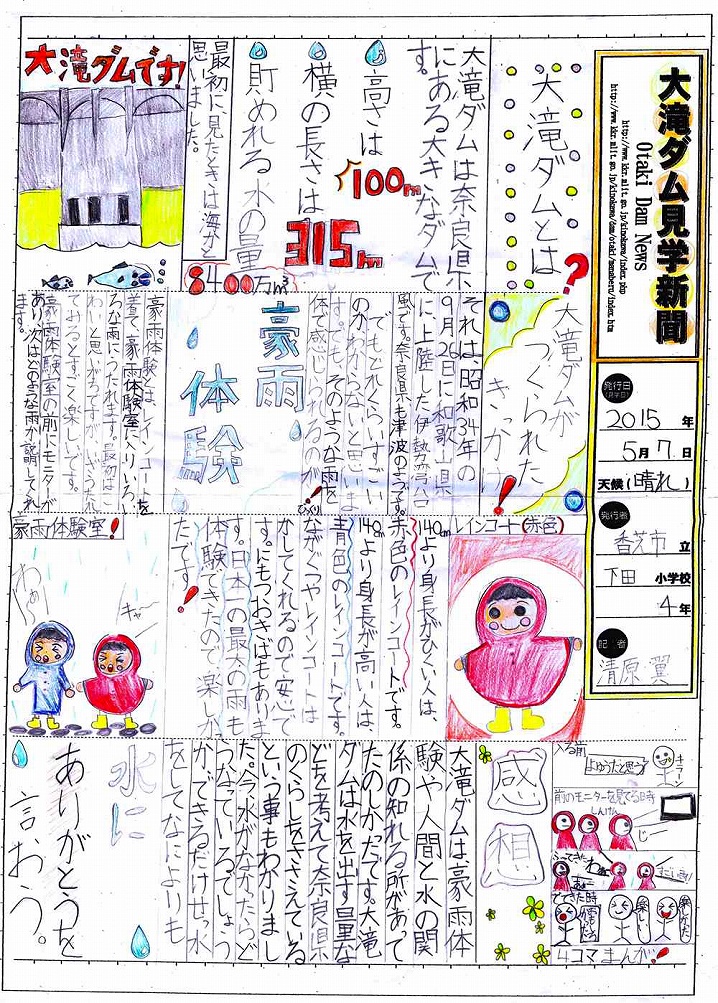 大滝ダム見学新聞
Otaki Dam News
http://www.kkr.mlit.go.jp/kinokawa/index.php
発行日
2015年
5月7日
天候(晴れ)
発行者
香芝市立
下田小学校
4年
記者
清原翼
大滝ダムとは?
大滝ダムは奈良県
にある大きなダムで
す。
高さは100m
横の長さは315m
貯めれる水の量
8400万m³
最初に見たときは海かと
思いました。
大滝ダムです!
大滝ダムが
つくられた
きっかけ!
それは、昭和34年の
9月26日に和歌山県
に上陸した伊勢湾台
風です。奈良県も津波のようです。
でもどれくらいすごい
のかわからないと思いま
す。でも、そのような雨を
体で感じられるのが!
びっくり
豪雨
体験
豪雨体験とは、レインコートを
着て、豪雨体験室に入りいろい
ろな雨にうたれます。最初はこ
わいと思いがちですが、いざうたれ
てみるとすごく楽しいです。
豪雨体験室の前にモニタが
あり、次はどのような雨か説明してくれ
ます。
レインコート(赤色)
140cmより身長がひくい人は、
赤色のレインコートです。
140cmより身長が高い人は、
青色のレインコートです。
ながぐつやレインコートは
かしてくれるので安心で
す。にもつおきばもありま
す。日本一の最大の雨も
体験できたので楽しか
たです!
豪雨体験室!
わぁ
キャー
感想
大滝ダムは、豪雨体
験や人間と水の関
係の知れる所があて
たのしかたです。大滝
ダムは水を出す量な
どを考えて奈良県
のくらしをささえている
という事もわかりまし
た。今、水がなかたらど
うなっているでしょう
か。できるだけせっ水
をしてなによりも
水に
ありがとうを
言おう。
入る前
よゆうだと思う!
キラーン
前のモニターを見てる時
しんけん
じー
でてきた時
4コマまんが!